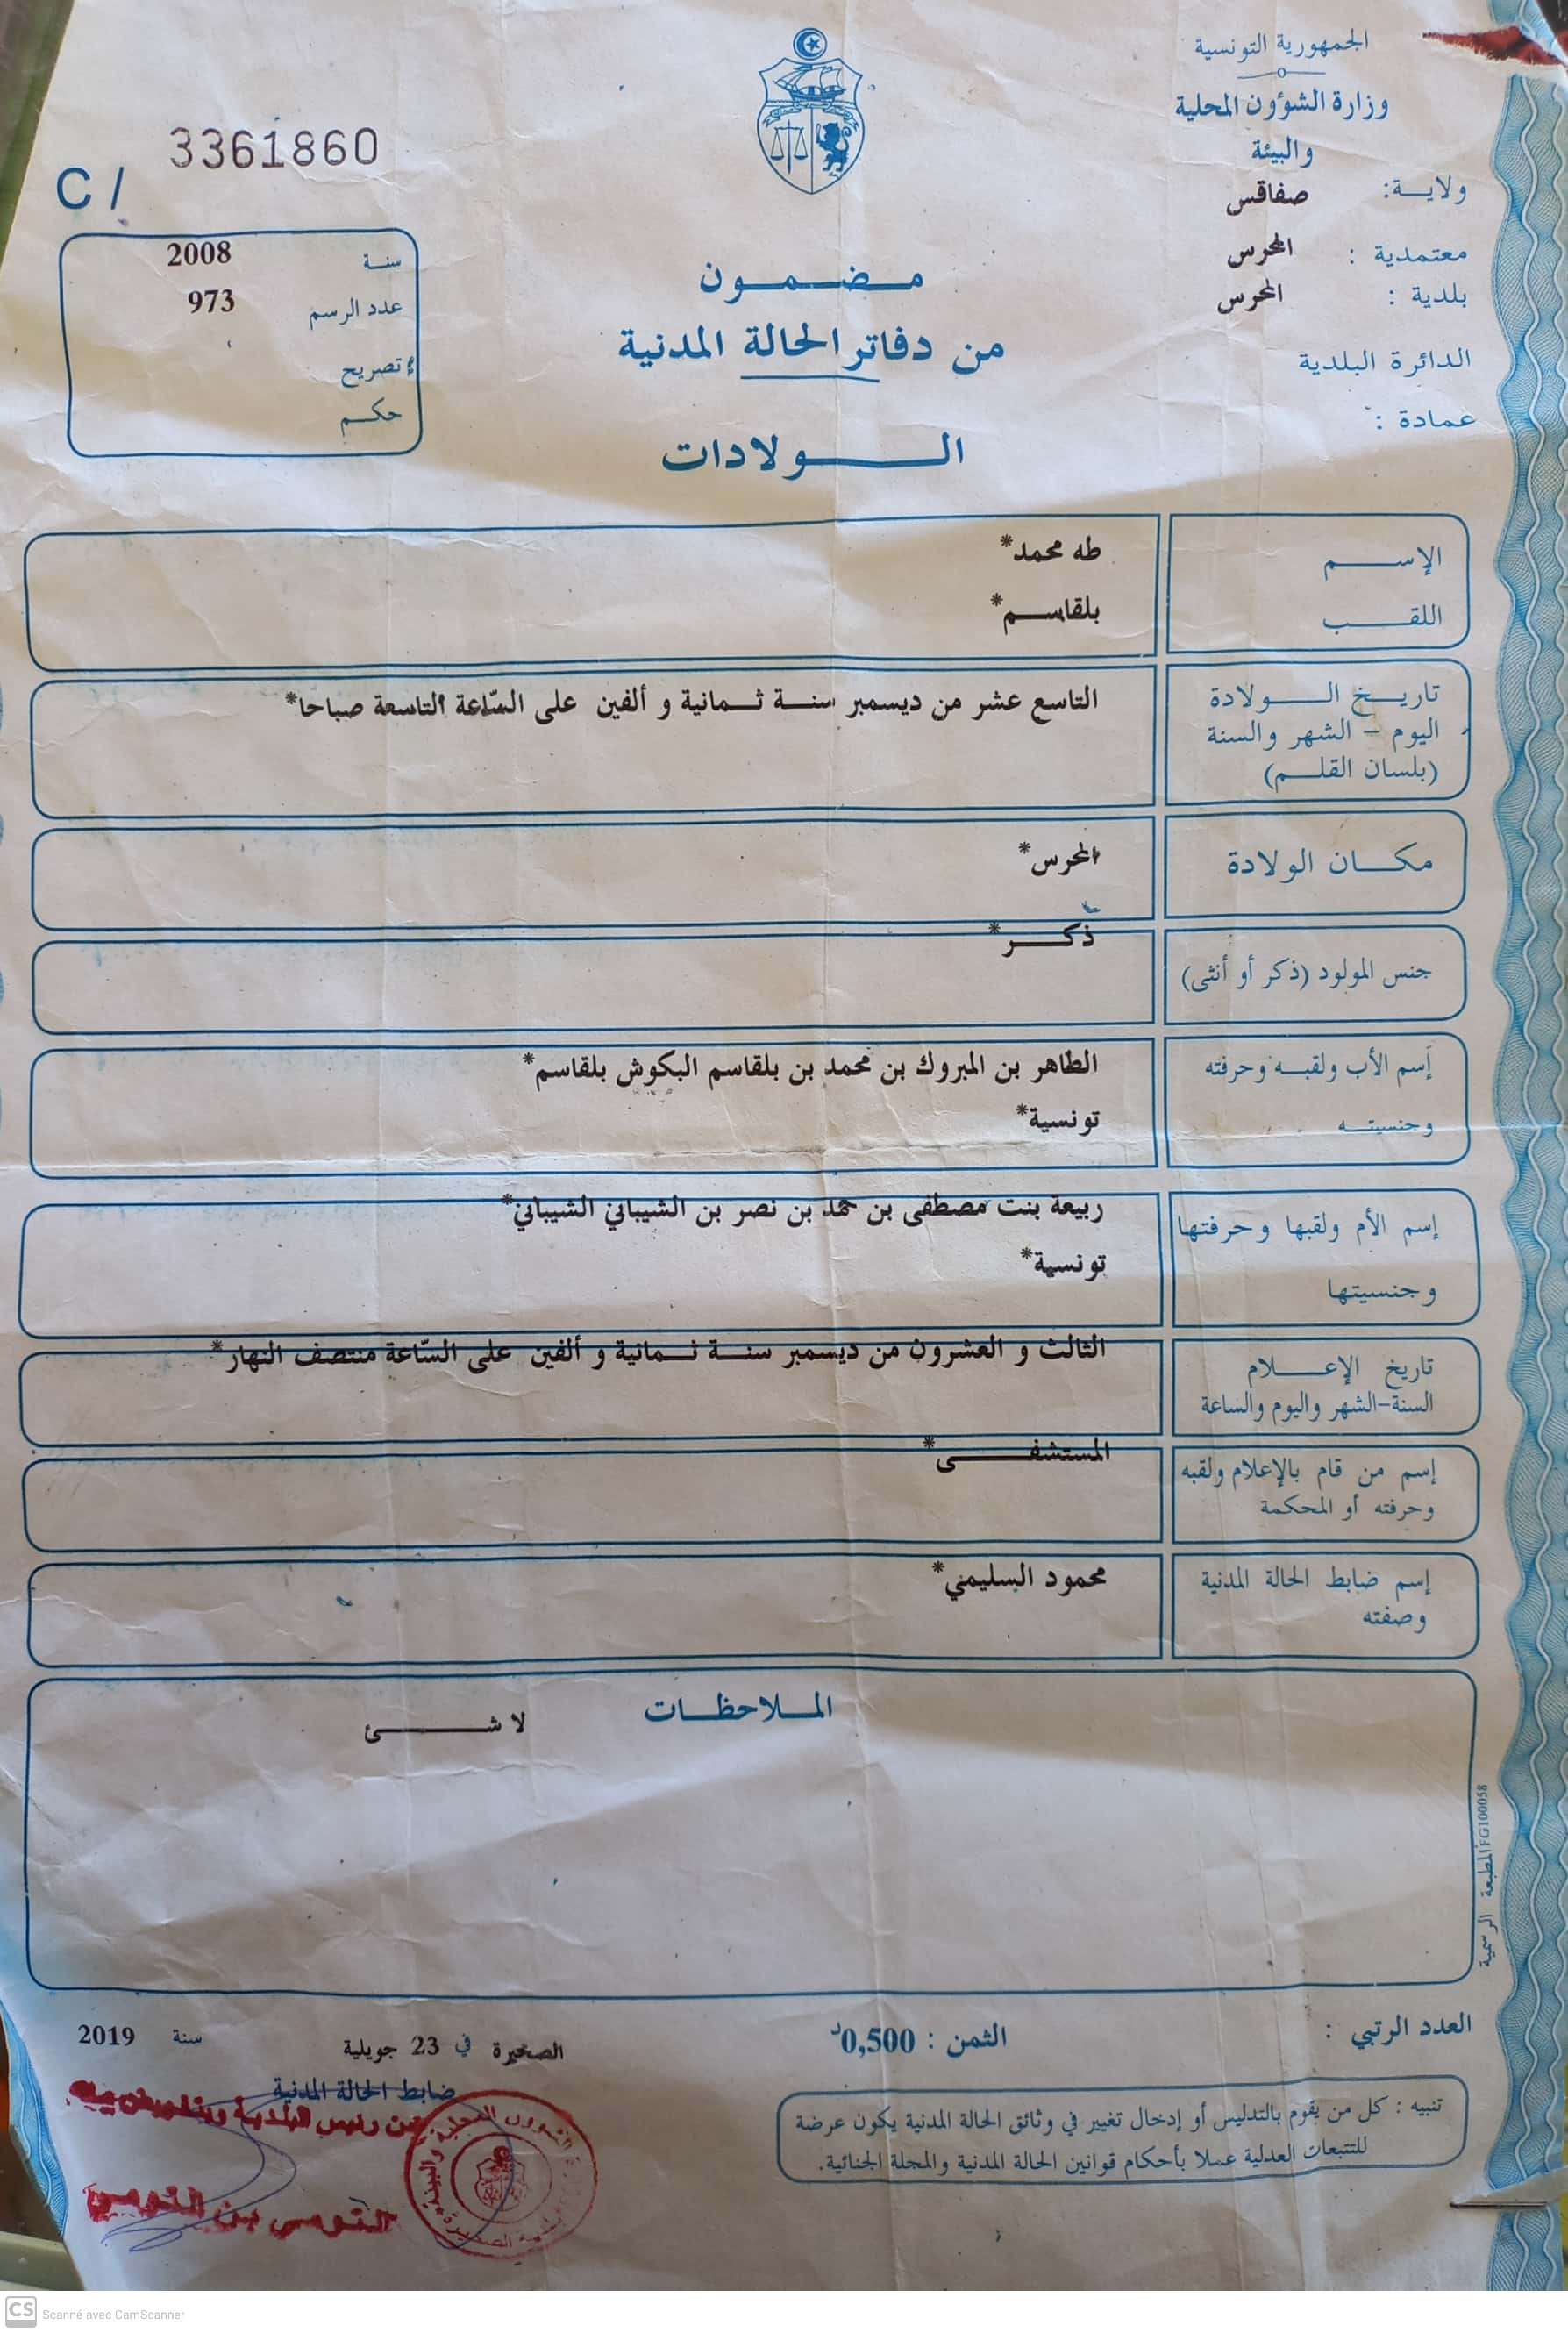 الجمهورية التونسية
وزارة الشؤون المحلية
والبيئة
ولايـــة: صفاقس
معتمدية : المحرس
بلدية : المحرس
الدائرة البلدية
عمادة :
3361860
C /
سنـة 2008
عدد الرسم 973
تصريح
حكـم
مـضـمـون
من دفاتر الحالة المدنية
الـــولادات
الإســـم طه محمد*
اللقـــب بلقاسـم*
تاريـخ الـــولادة التاسع عشر من ديسمبر سنـة ثـمانية و ألفين على السّاعة التاسعة صباحا*
اليوم – الشهر والسنة
(بلسان القلـــم)
مكــان الولادة المحرس*
جنس المولود (ذكر أو أنثى) ذكـــر*
إسم الأب ولقبـه وحرفته الطاهر بن المبروك بن محمد بن بلقاسم البكوش بلقاسم*
وجنسيتـه تونسية*
إسم الأم ولقبها وحرفتها ربيعة بنت مصطفى بن حمد بن نصر بن الشيباني الشيباني*
وجنسيتها تونسية*
تاريخ الإعــلام الثالث و العشرون من ديسمبر سنـة ثـمانية و ألفين على السّاعة منتصف النهار*
السنة-الشهر واليوم والساعة
إسم من قام بالإعلام ولقبه المستشفـــى*
وحرفته أو المحكمة
إسم ضابط الحالة المدنية محمود السليمني*
وصفته
الملاحظـات
لا شـــئ
المطبعة الرسمية FG100058
العدد الرتبي :
الثمن : 0,500د
الصخيرة في 23 جويلية سنة 2019
ضابط الحالة المدنية
عن رئيس البلدية وبتفويض منه
التومي بن التومي
تنبيه : كل من يقوم بالتدليس أو إدخال تغيير في وثائق الحالة المدنية يكون عرضة
للتتبعات العدلية عملا بأحكام قوانين الحالة المدنية والمجلة الجنائية.
CS Scanné avec CamScanner